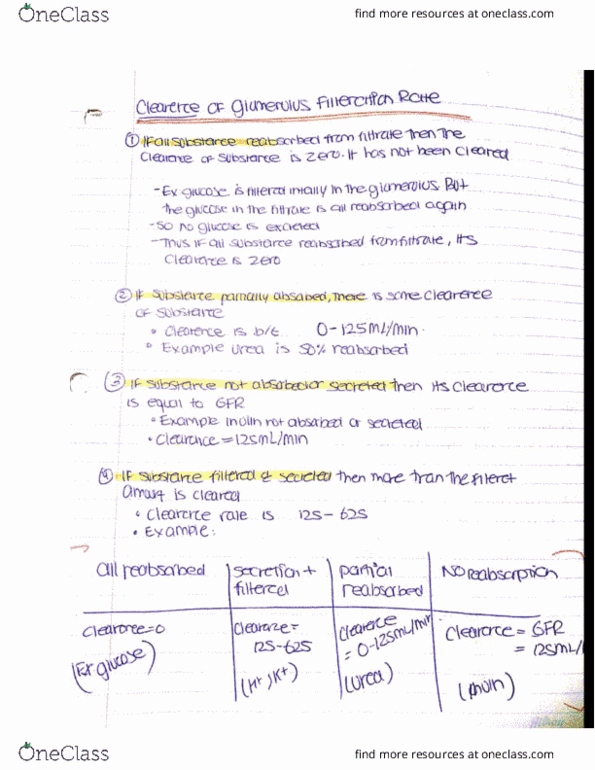 OneClass
find more resources at oneclass.com
Clearence of Glumerulus Filteration Rate
① If all substance reabsorbed from filtrate then the
clearance of substance is zero. It has not been cleared
- Ex glucose is filtered initially in the glumerulus. But
the glucose in the filtrate is all reabsorbed again
- So no glucose is excreted
- Thus if all substance reabsorbed from filtrate, its
clearence is zero
② If substance partially absorbed, there is some clearence
of substance
• Clearence is b/t 0-125mL/min.
• Example urea is 50% reabsorbed
③ If substance not absorbed or secreted then its clearence
is equal to GFR
• Example inulin not absorbed or secreted
• Clearance = 125mL/min
④ If substance filtered & secreted then more than the filtered
amount is cleared
• Clearence rate is 125-625
• Example:
all reabsorbed
secretion + filtered
partial reabsorbed
NO Reabsorption
clearence = 0
(Ex glucose)
Clearence =
125-625
(H+, K+)
Clearence
= 0-125mL/min
(Urea)
Clearence = GFR
= 125mL/
(Inulin)
OneClass
find more resources at oneclass.com